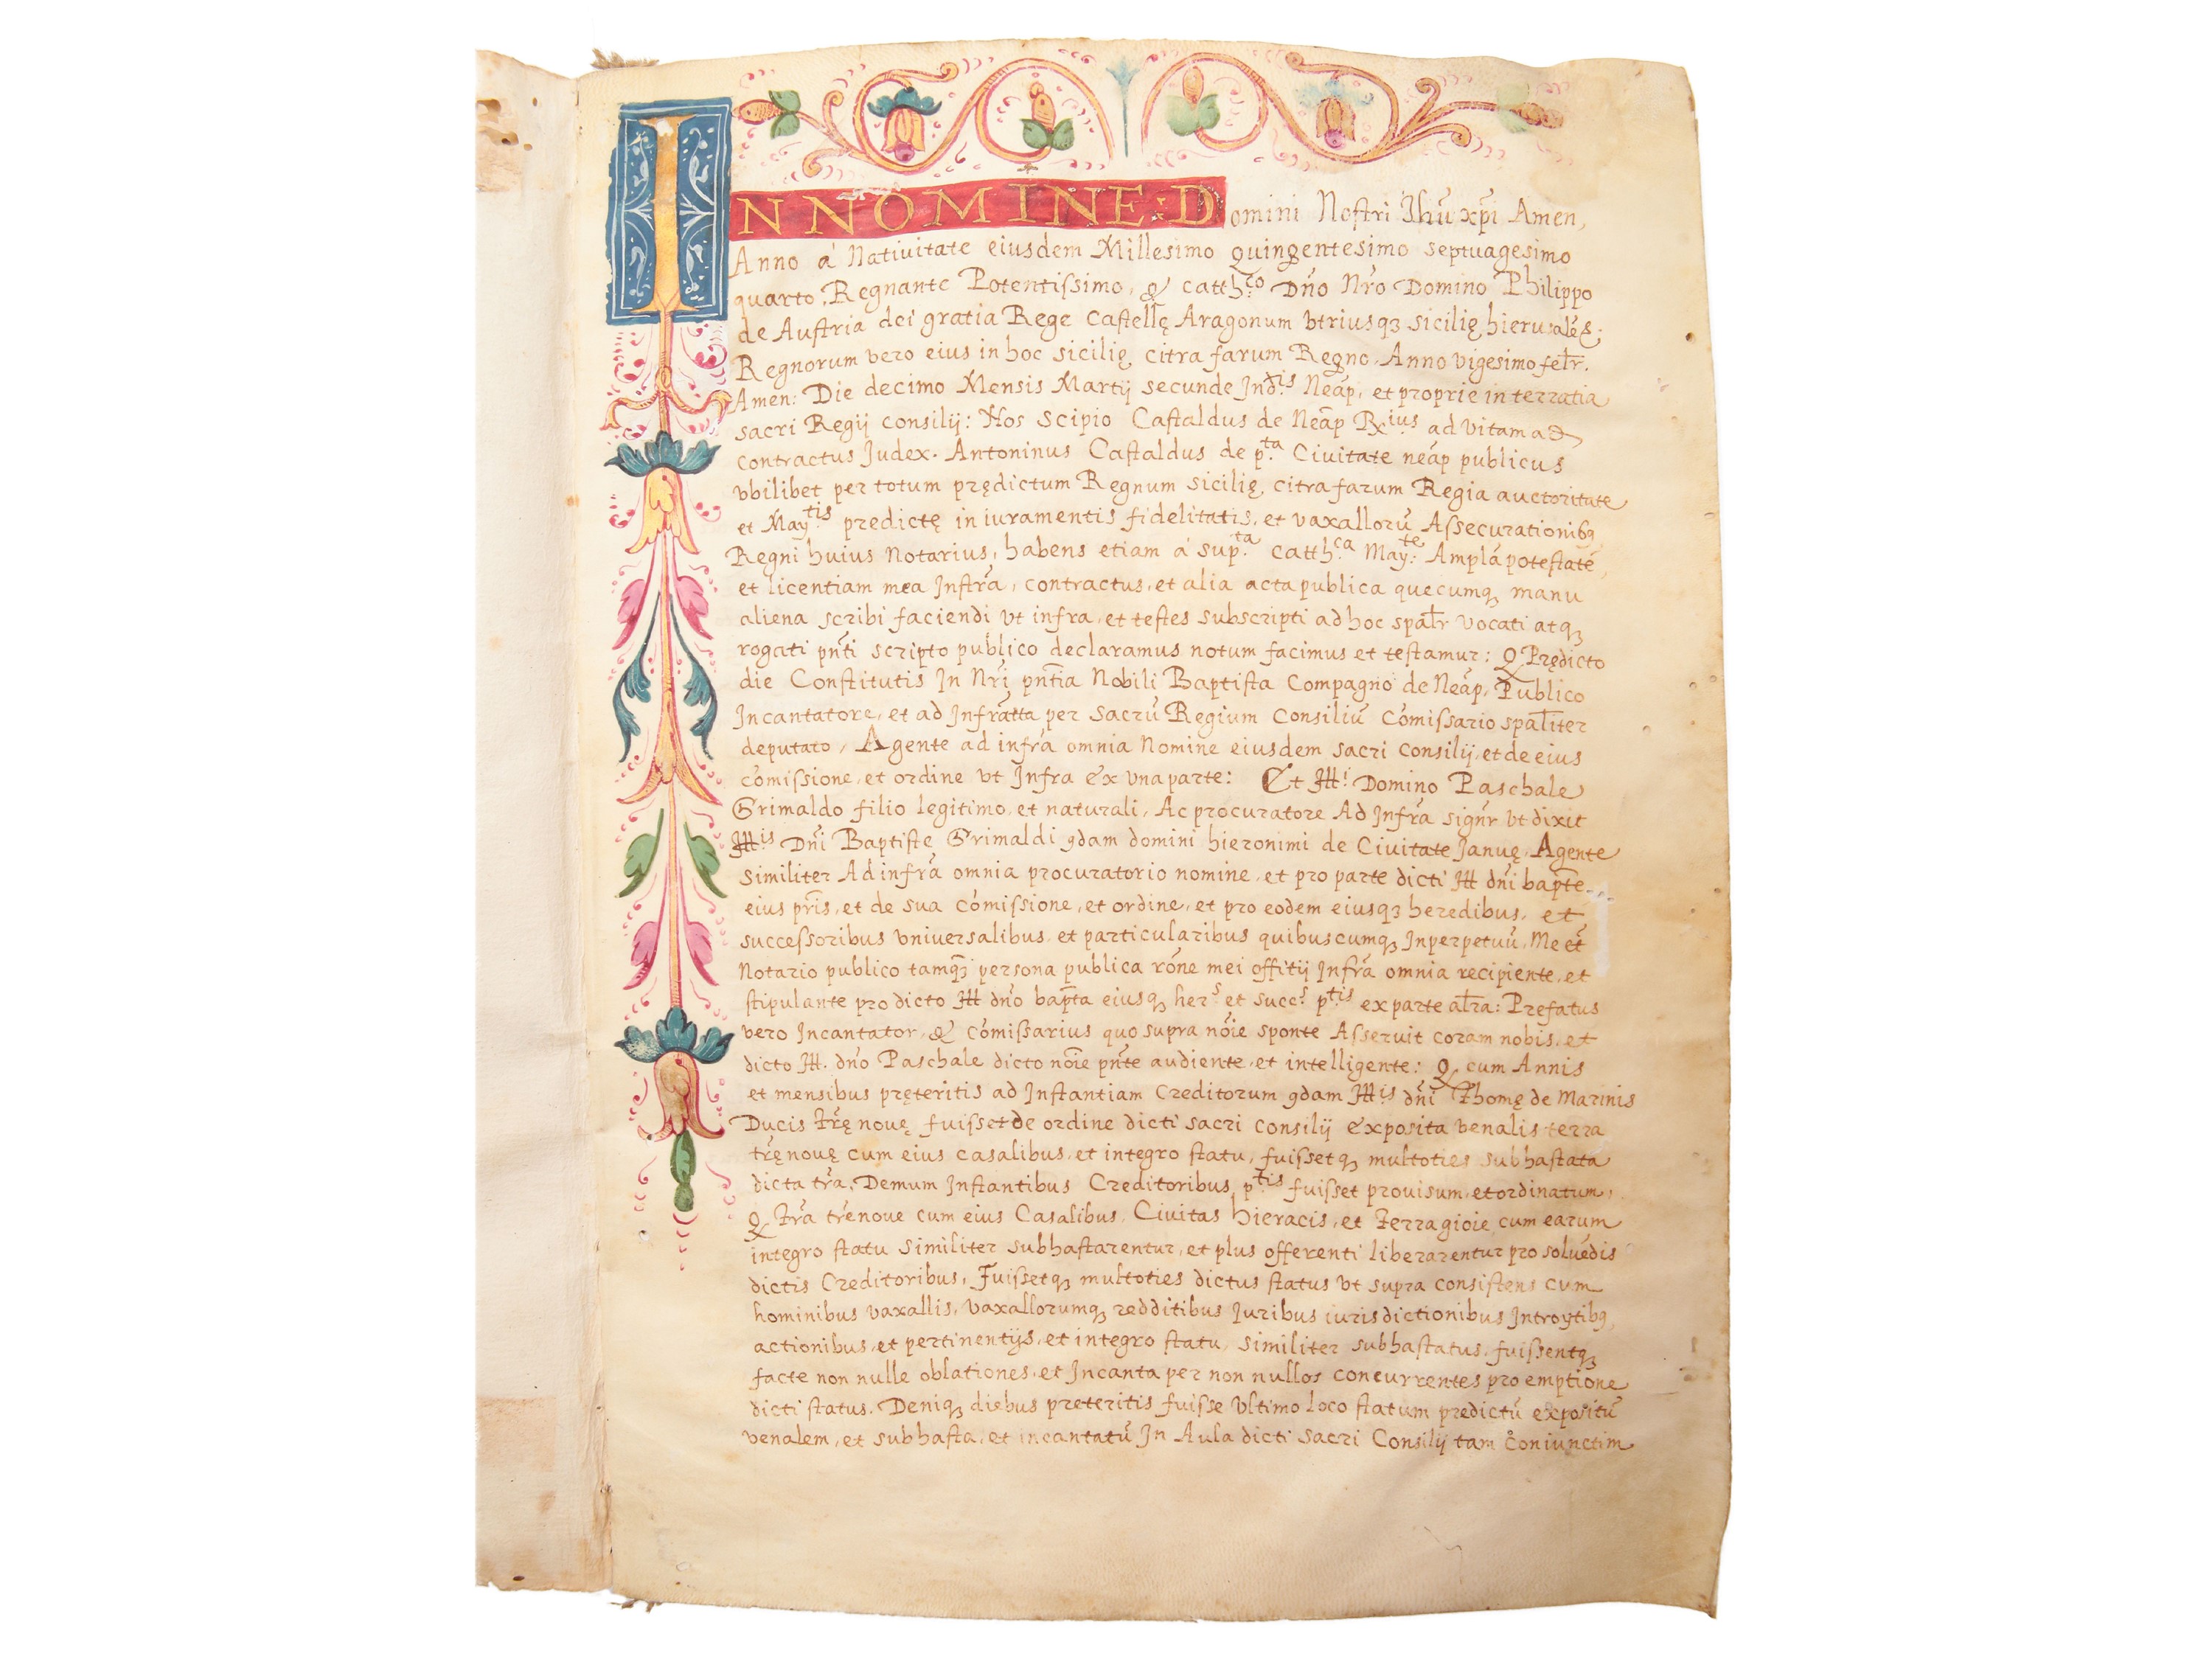 IN NOMINE: Domini Nostri Jhũ xp̃i Amen,
Anno á Nativitate eiusdem Millesimo quingentesimo septuagesimo
quarto, Regnante Potentissimo, & catth.co Dño Nr̃o Domino Philippo
de Austria dei gratia Rege Castellę Aragonum vtriusqȝ sicilię hierusalẽ &.
Regnorum vero eius in hoc sicilię, citra farum Regno. Anno vigesimo felr̃.
Amen: Die decimo Mensis Martij secunde Ind.tis Neáp, et proprie in terratia
sacri Regij consilij: Nos Scipio Castaldus de Neap̃ Rx.ius ad vitam ad
contractus Judex. Antoninus Castaldus de p.ta Ciuitate neáp publicus
vbilibet per totum prędictum Regnum sicilię, citra farum Regia auctoritate
et May.tis predictę in iuramentis fidelitatis, et vaxallorũ Assecurationibȝ
Regni huius Notarius, habens etiam á sup.ta catth.ca May.te: Amplã potestatẽ,
et licentiam mea Instr̃a, contractus, et alia acta publica quecumqȝ manu
aliena scribi faciendi vt infra, et testes subscripti ad hoc spal̃r vocati atqȝ
rogati pñti scripto publico declaramus notum facimus et testamur: Q Prędicto
die Constitutis In Nr̃i pñtia Nobili Baptista Compagno de Neáp, Publico
Incantatore, et ad Infr̃atta per Sacrũ Regium Consiliũ Cõmissario spal̃iter
deputato, Agente ad infr̃a omnia Nomine eiusdem sacri consilij, et de eius
cõmissione, et ordine vt Infra ex vna parte: Et Ill.i Domino Paschale
Grimaldo filio legitimo, et naturali, Ac procuratore Ad Infr̃a signr̃ vt dixit
Ill.is Dñi Baptistę Grimaldi qdam domini hieronimi de Ciuitate Januę, Agente
similiter Ad infr̃a omnia procuratorio nomine, et pro parte dicti Ill dñi bapt̃e
eius pr̃is, et de sua cõmissione, et ordine, et pro eodem eiusqȝ heredibus, et
successoribus vniuersalibus, et particularibus quibuscumqȝ Inperpetuũ, Me et
Notario publico tamqȝ persona publica rõne mei offitij Infr̃a omnia recipiente, et
stipulante pro dicto Ill dño bapt̃a eiusqȝ her.s et succ.s p.tis ex parte al̃ra: Prefatus
vero Incantator, & cõmissarius quo supra nõie sponte Asseruit coram nobis, et
dicto Ill. dño Paschale dicto nõie pñte audiente, et intelligente: Q cum Annis
et mensibus pręteritis ad Instantiam Creditorum qdam Ill.is dñi Thomę de Marinis
Ducis Tr̃ę nouę, fuisset de ordine dicti sacri consilij exposita venalis terra
tr̃ę nouę cum eius casalibus, et integro statu, fuissetqȝ multoties subhastata
dicta tr̃a, Demum Instantibus Creditoribus, p.tis fuisset prouisum, et ordinatum,
Q Tr̃a tr̃e noue cum eius Casalibus, Ciuitas hieracis, et Terra gioie cum earum
integro statu similiter subhastarentur, et plus offerenti liberarentur pro soluẽdis
dictis Creditoribus, Fuissetqȝ multoties dictus status vt supra consistens cum
hominibus vaxallis, vaxallorumqȝ redditibus Juribus iurisdictionibus Introytibȝ
actionibus, et pertinentijs, et integro statu, similiter subhastatus, fuissentqȝ
facte non nulle oblationes, et Incanta per non nullos concurrentes pro emptione
dicti status. Deniqȝ diebus preteritis fuisse vltimo loco statum predictũ expositũ
venalem, et subhasta, et incantatũ In Aula dicti Sacri Consilij tam coniunctim